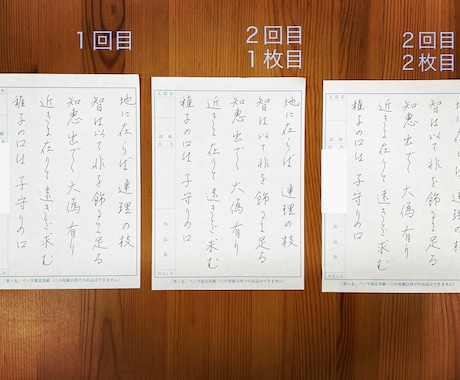 1回目
2回目
1枚目
2回目
2枚目
地に在らば 連理の枝
智は以て非を飾るに足る
知恵出でて大偽有り
近きに在りて遠きを求む
稚子の口は子守りの口
地に在らば 連理の枝
智は以て非を飾るに足る
知恵出でて大偽有り
近きに在りて遠きを求む
稚子の口は子守りの口
智は以て非を飾るに足る
知恵出でて大偽有り
近きに在りて遠きを求む
稚子の口は子守りの口